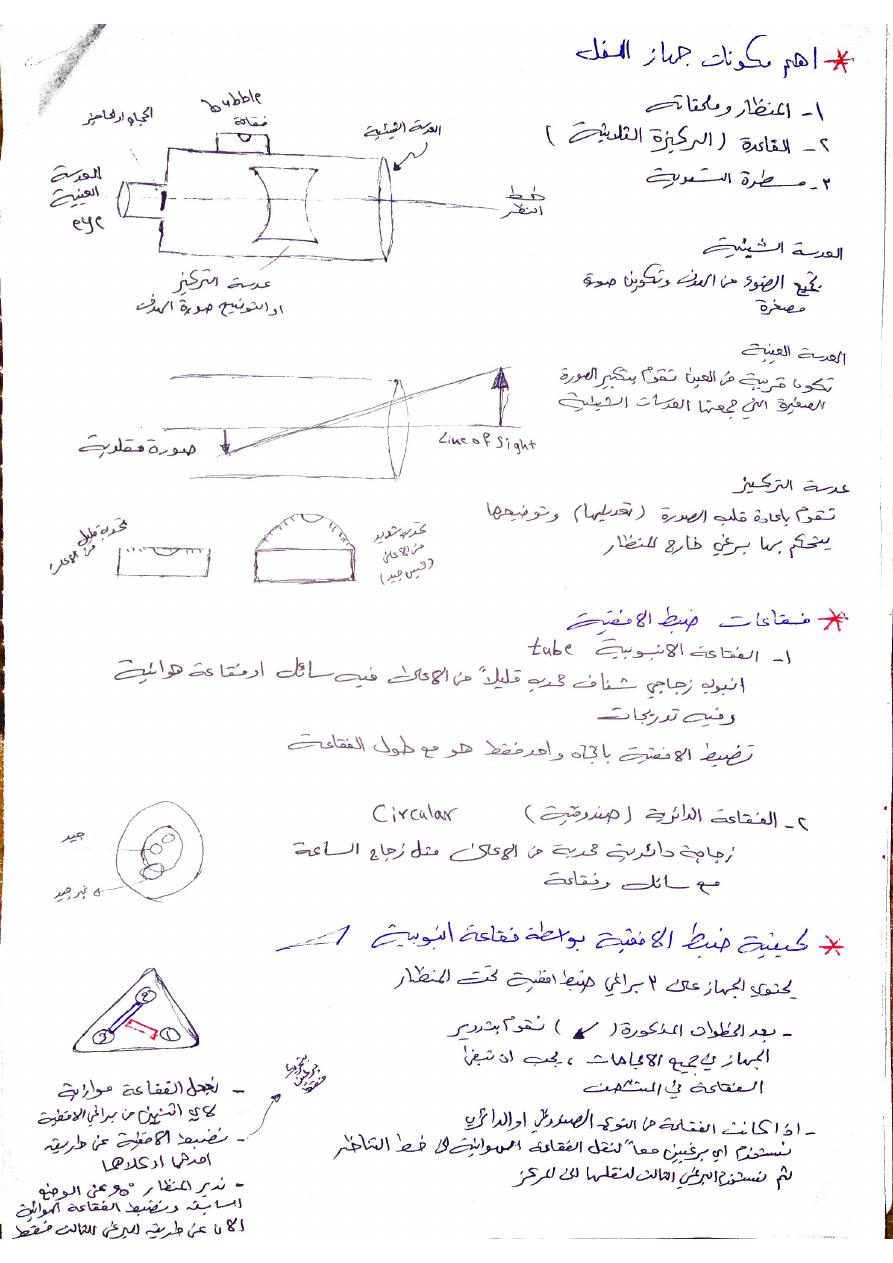 * اهم مكونات جهاز السفل
١- المنظار وملحقاته
٢- القاعدة (الركيزة الثلاثية)
٣- مسطرة التسوية
bubble
فقاعة
العدسة الشيئية
العدسة
العينية
eye
خط
النظر
عدسة التركيز
او التوضيح صورة الهدف
العدسة الشيئية
تجمع الضوء من الهدف وتكوين صورة
مصغرة
العدسة العينية
تكون قريبة من العين تقوم بتكبير الصورة
الصغيرة التي جمعتها العدسات الشيئية
Line of Sight
صورة مقلوبة
عدسة التركيز
تقوم باعادة قلب الصورة (تعديلها) وتوضيحها
يتحكم بها برغي خارج المنظار
تحدب قليل
من الاعلى
تحدب شديد
من الاعلى
(ليس جيد)
* فقاعات ضبط الافقية
١- الفقاعة الانبوبية tube
انبوب زجاجي شفاف محدب قليلاً من الاعلى فيه سائل او فقاعة هوائية
وفيه تدريجات
تضبط الافقية باتجاه واحد فقط هو مع طول الفقاعة
٢- الفقاعة الدائرية (صندوقية) Circular
زجاجة دائرية محدبة من الاعلى مثل زجاج الساعة
مع سائل وفقاعة
جيد
غير جيد
* كيفية ضبط الافقية بواسطة فقاعة انبوبية
يحتوي الجهاز على ٣ براغي ضبط افقية تحت المنظار
- بعد الخطوات المذكورة (↙) نقوم بتدوير
الجهاز في جميع الاتجاهات، يجب ان تبقى
الفقاعة في المنتصف
- اذا كانت الفقاعة من النوع الصندوقي او الدائري
نستخدم اي برغيين معاً لنقل الفقاعة الهوائية الى خط التناظر
ثم نستخدم البرغي الثالث لنقلها الى المركز
2
3
1
- نجعل الفقاعة موازية
لاي اثنين من براغي الافقية
- نضبط الافقية عن طريق
احدهما او كلاهما
- ندير المنظار 90° عن الوضع
السابق ونضبط الفقاعة الهوائية
الان عن طريق البرغي الثالث فقط